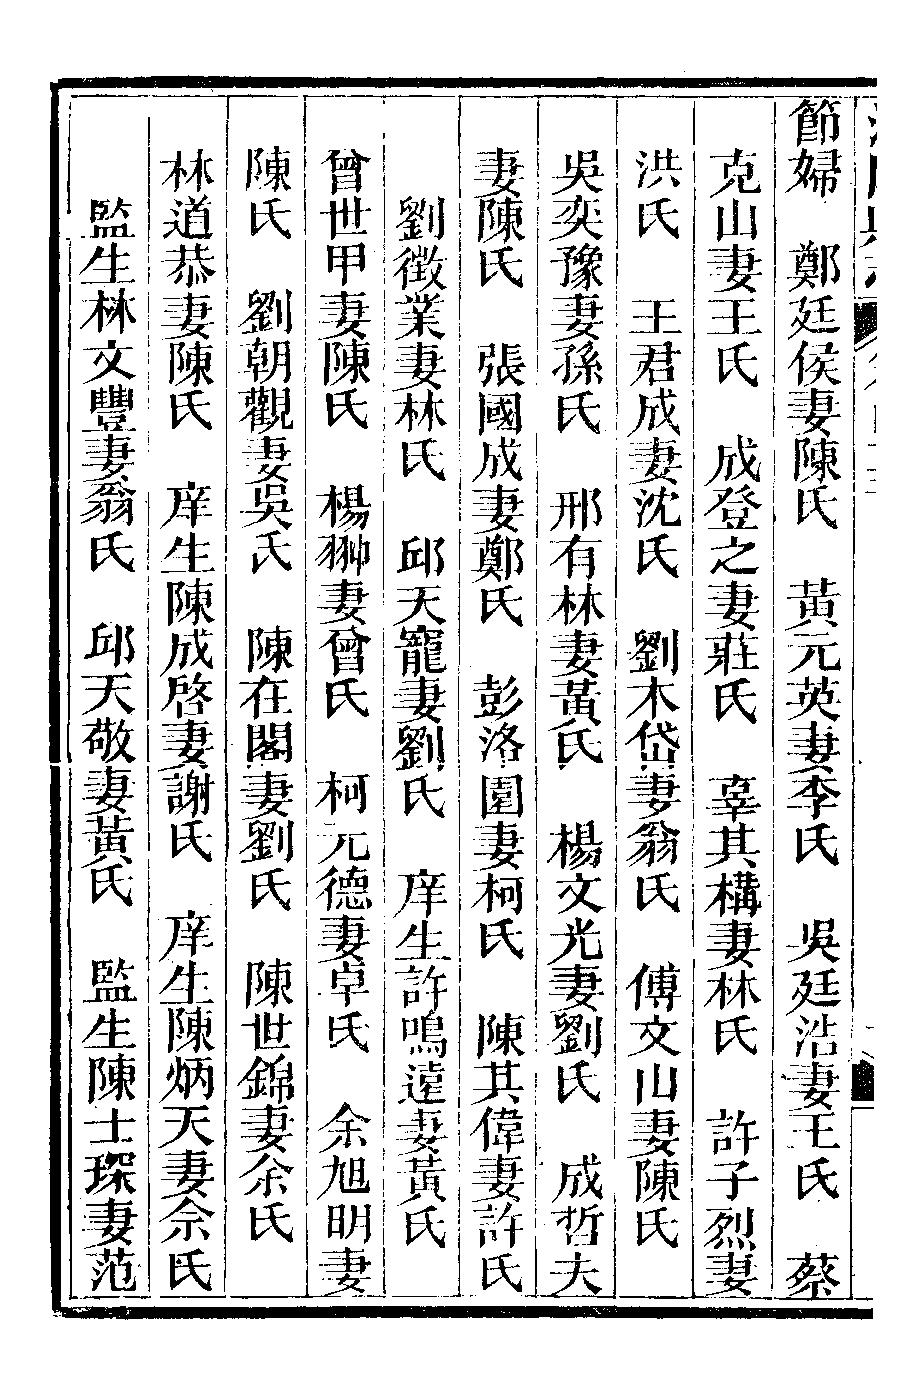 節婦　鄭廷侯妻陳氏　黃元英妻李氏　吳廷浩妻王氏　蔡
克山妻王氏　成登之妻莊氏　辜其構妻林氏　許子烈妻
洪氏　王君成妻沈氏　劉木岱妻翁氏　傅文山妻陳氏
吳奕豫妻孫氏　邢有林妻黃氏　楊文光妻劉氏　成哲夫
妻陳氏　張國成妻鄭氏　彭洛園妻柯氏　陳其偉妻許氏
劉徵業妻林氏　邱天寵妻劉氏　庠生許鳴遠妻黃氏
曾世甲妻陳氏　楊翀妻曾氏　柯元德妻卓氏　余旭明妻
陳氏　劉朝觀妻吳氏　陳在閣妻劉氏　陳世錦妻余氏
林道恭妻陳氏　庠生陳成啓妻謝氏　庠生陳炳天妻佘氏
監生林文豐妻翁氏　邱天敬妻黃氏　監生陳士琛妻范